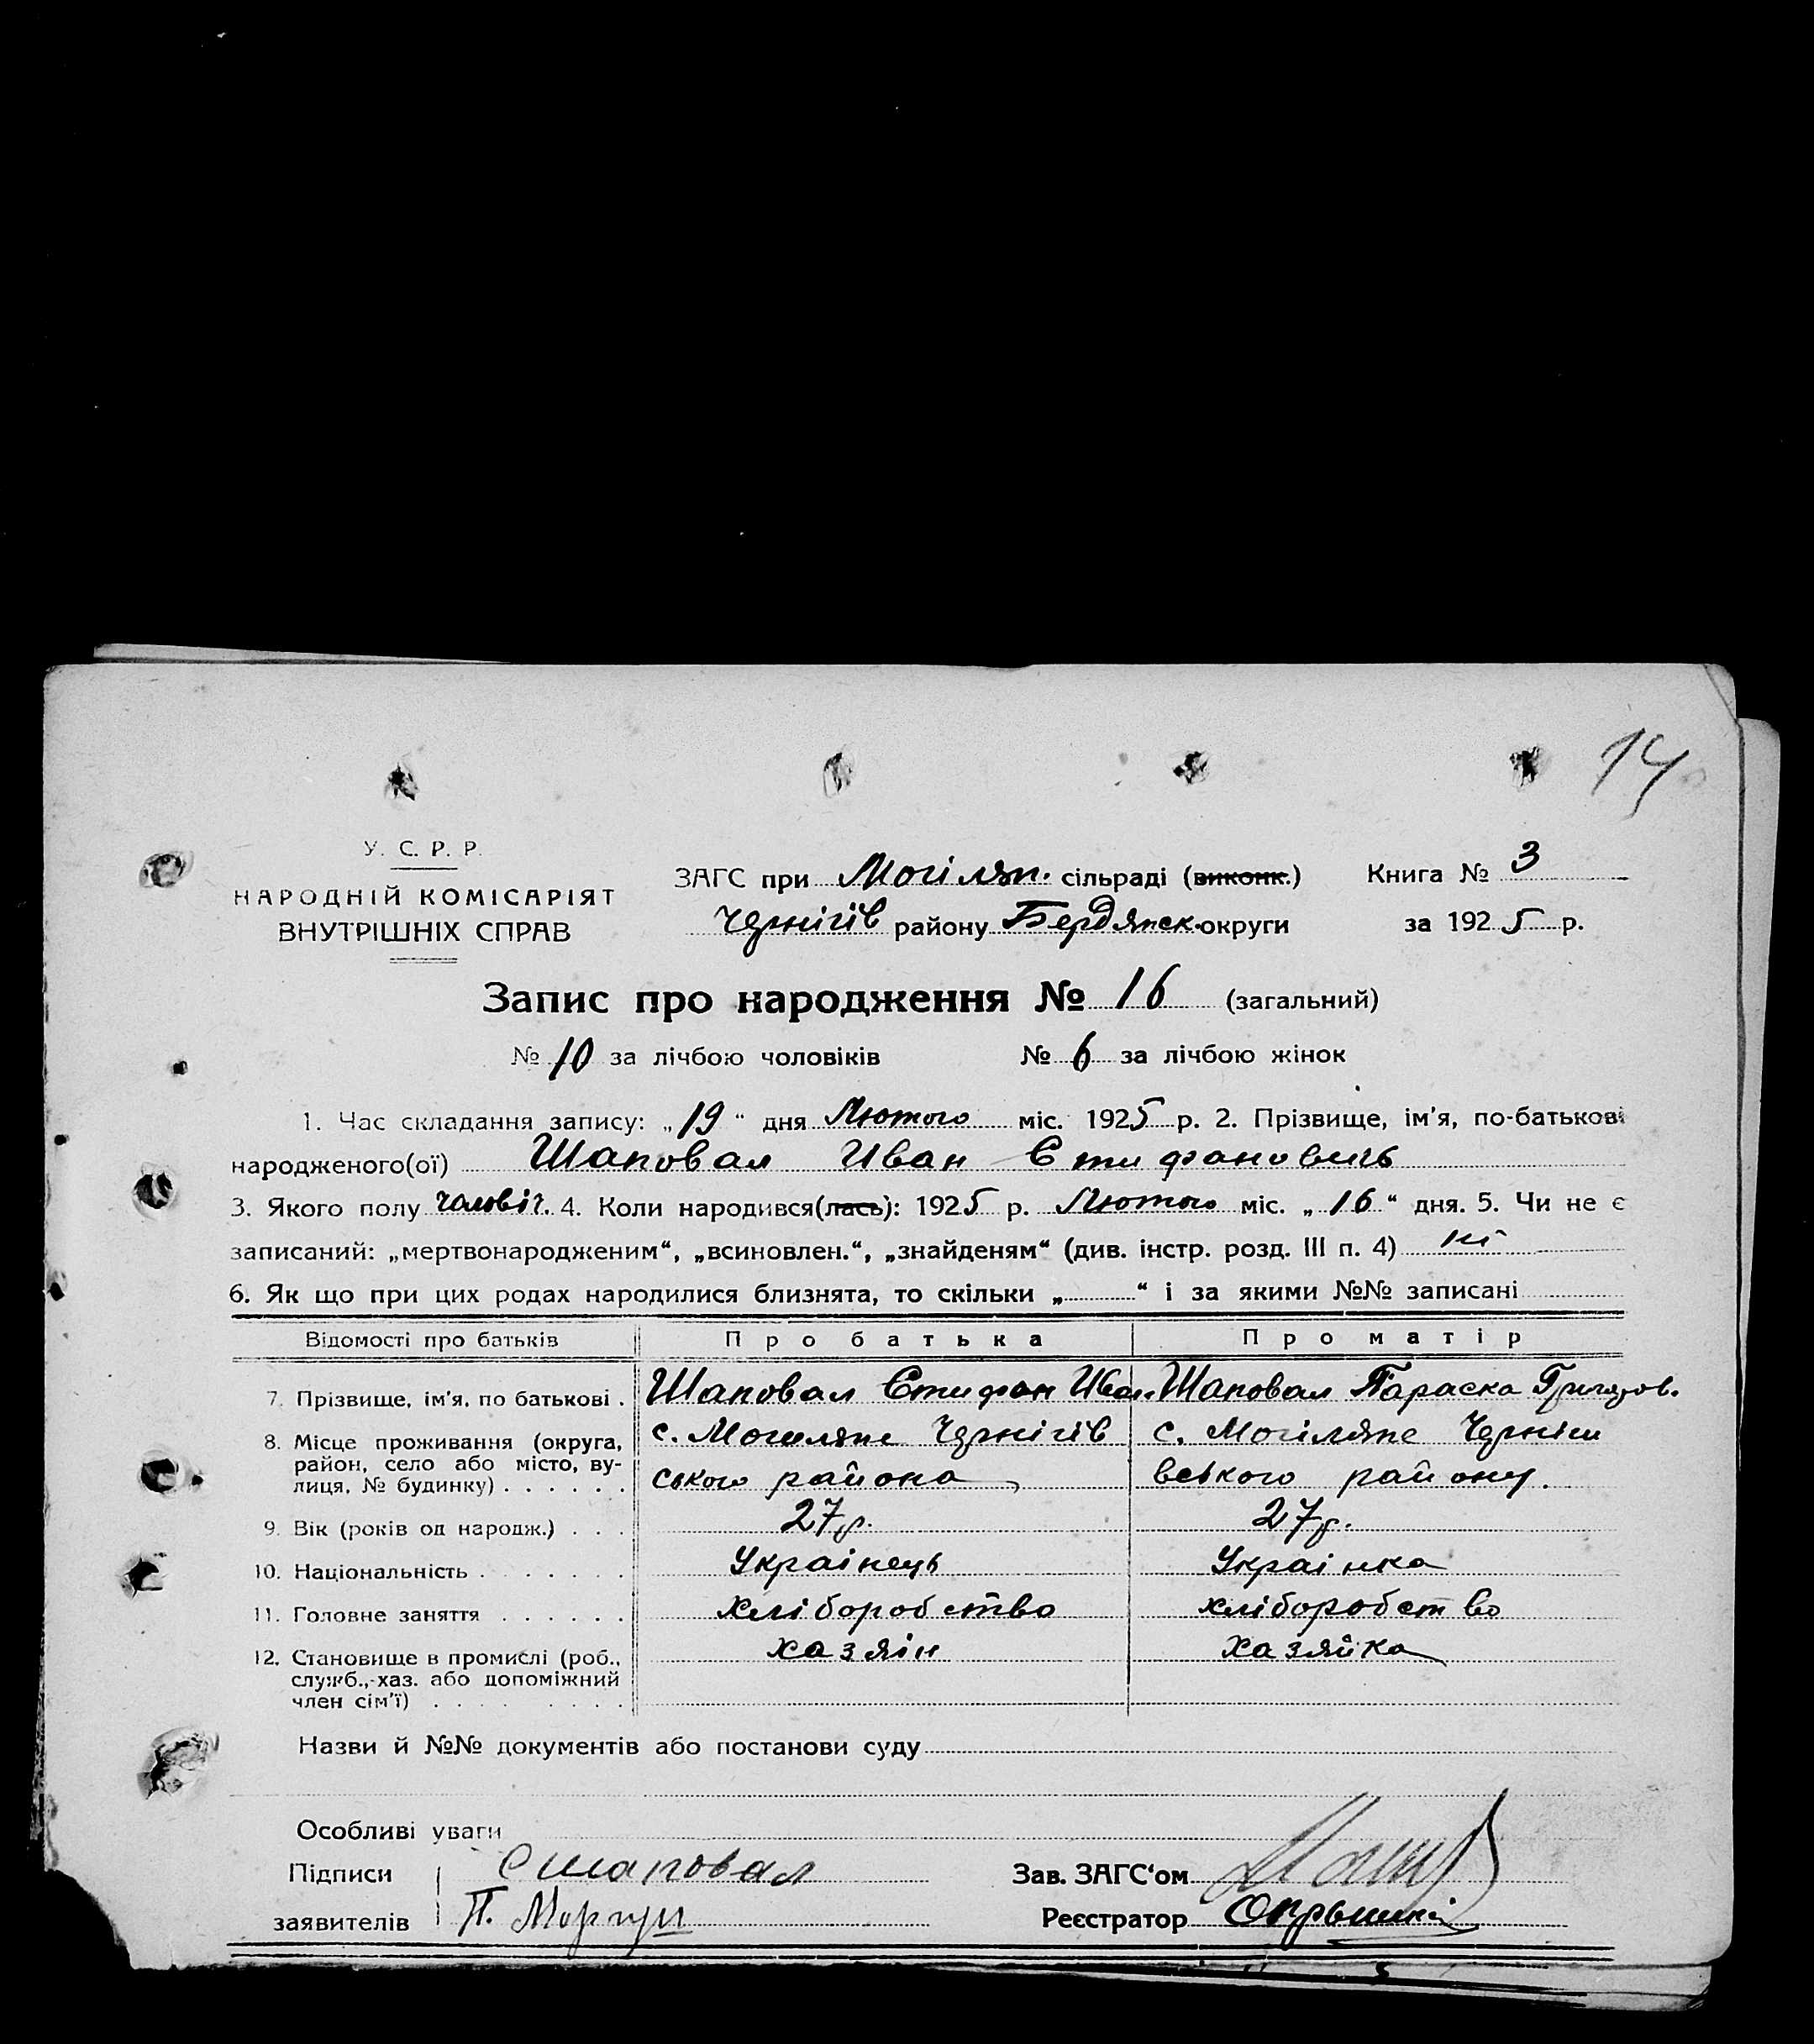 14
У. С. Р. Р.
НАРОДНІЙ КОМІСАРІЯТ
ВНУТРІШНІХ СПРАВ
ЗАГС при Могілян. сільраді (виконк.) Книга № 3
Чернігів району Бердянск. округи за 1925 р.
Запис про народження № 16 (загальний)
№ 10 за лічбою чоловіків № 6 за лічбою жінок
1. Час складання запису: „19“ дня Лютого міс. 1925 р. 2. Прізвище, ім'я, по-батькові
народженого(ої) Шаповал Иван Стифановичь
3. Якого полу чоловіч. 4. Коли народився(лась): 1925 р. Лютого міс. „16“ дня. 5. Чи не є
записаний: „мертвонародженим“, „всиновлен.“, „знайденям“ (див. інстр. розд. III п. 4) ні
6. Як що при цих родах народилися близнята, то скільки „ “ і за якими №№ записані
Відомості про батьків Про батька Про матір
7. Прізвище, ім'я, по батькові . Шаповал Стифон Иван. Шаповал Параска Григоров.
8. Місце проживання (округа, с. Могиляне Чернігів с. Могіляне Чернігі
район, село або місто, ву-
лиця, № будинку) . . . . . . ського района вського району.
9. Вік (років од народж.) . . . 27 р. 27 р.
10. Національність . . . . . . . Украінець Украінка
11. Головне заняття . . . . . . хліборобство хліборобство
12. Становище в промислі (роб., хазяін хазяйка
служб., хаз. або допоміжний
член сім'ї) . . . . . . . .
Назви й №№ документів або постанови суду
Особливі уваги
Підписи С Шаповал Зав. ЗАГС‘ом
заявителів П. Моргун Реєстратор